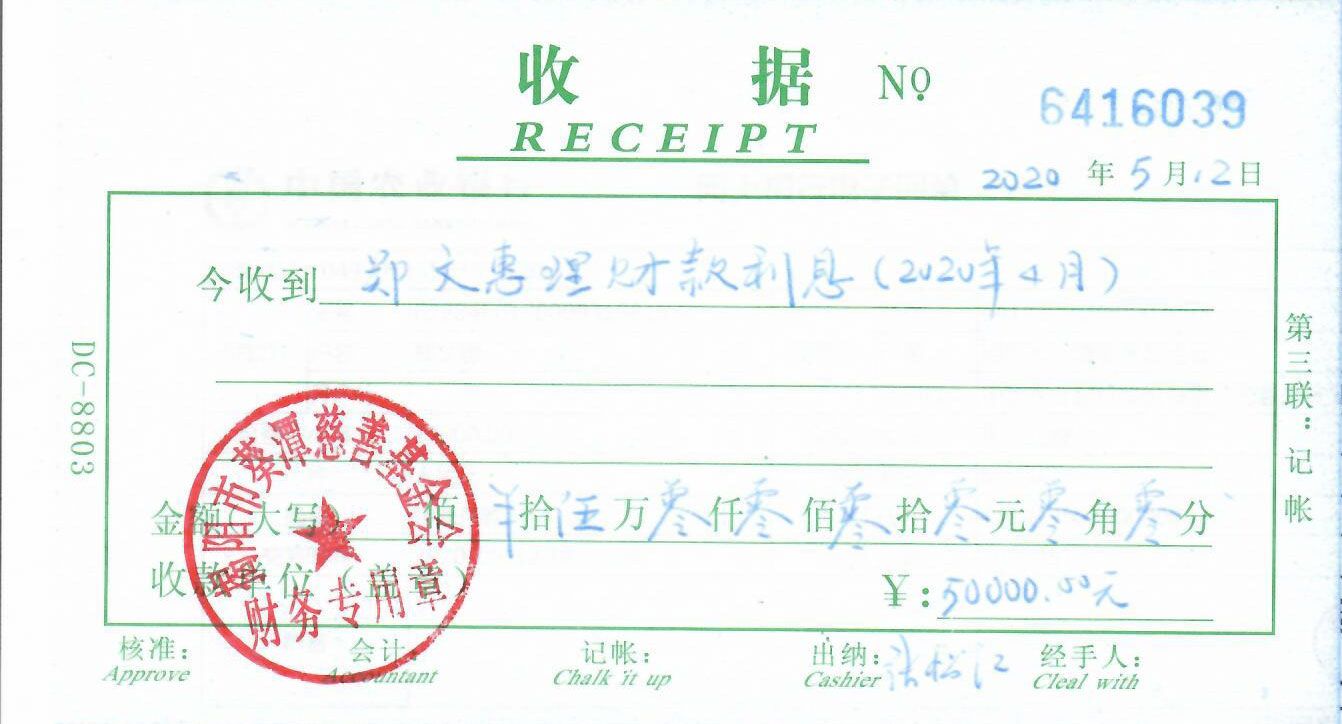 收 据 № 6416039
RECEIPT
2020 年 5 月 12 日
今收到 郑文惠理财款利息(2020年4月)
金额(大写) 佰 羊 拾 伍 万 零 仟 零 佰 零 拾 零 元 零 角 零 分
收款单位(盖章) ¥:50000.00元
核准: 会计: 记帐: 出纳: 张松江 经手人:
Approve Accountant Chalk it up Cashier Cleal with
DC-8803
第三联:记帐
市葵潭慈善基金会
财务专用章